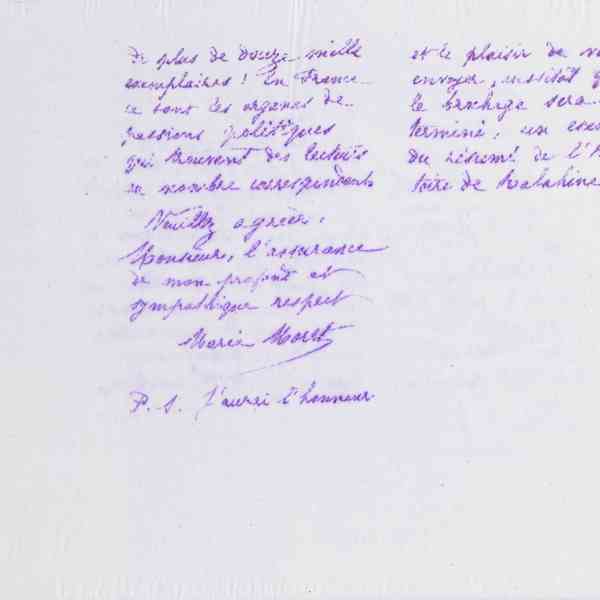 de plus de douze mille
exemplaires ! En France
ce sont les organes de
passions politiques
qui trouvent des lecteurs
en nombre correspondant
Veuillez agréer,
Monsieur, l'assurance
de mon profond et
sympathique respect
Marie Moret
P. S. J'aurai l'honneur
et le plaisir de
envoyer, aussitôt
le brochage sera
terminé, un
du résumé de l'
toire de